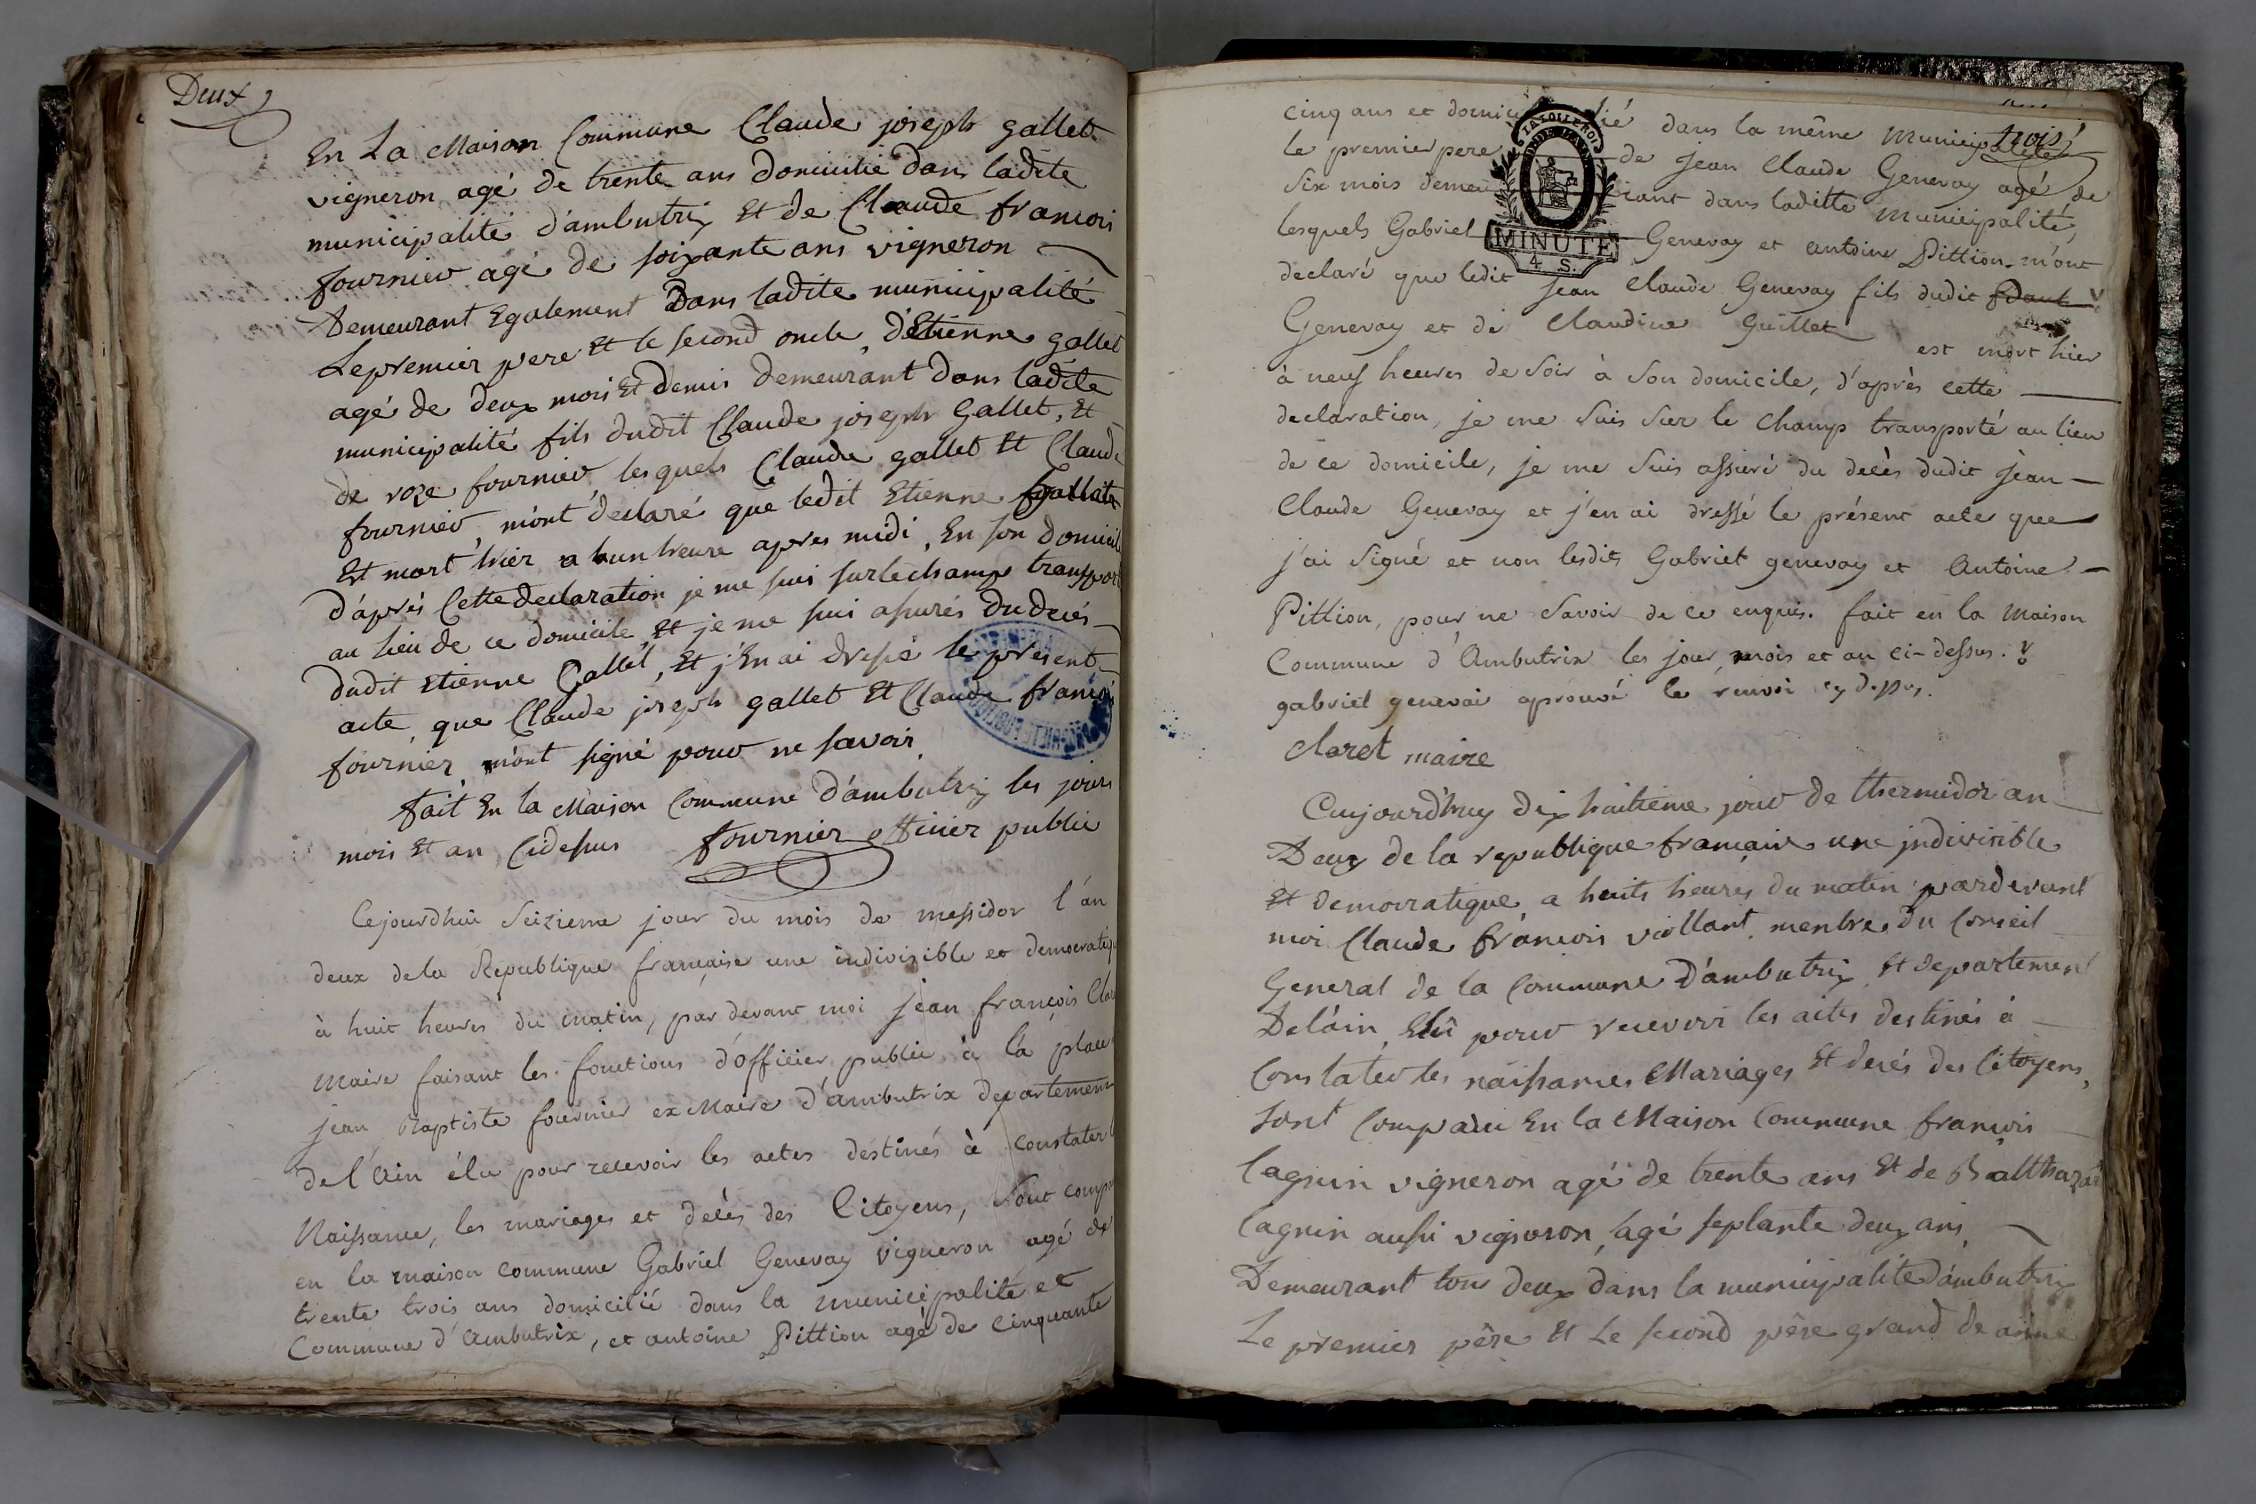 Deux
En La Maison Commune Claude joseph gallet
vigneron agé de trente ans domicilié dans ladite
municipalité d'ambutrix Et de Claude francois
fournier agé de soixante ans vigneron
Demeurant Egalement Dans ladite municipalité
Lepremier pere Et le second oncle, d'Etienne gallet
agé de deux mois Et demis demeurant dans ladite
municipalité fils dudit Claude joseph Gallet, Et
de roze fournier lesquels Claude gallet Et Claude
fournier, m'ont déclaré que ledit Etienne gallet
Est mort hier a hun heure apres midi, En son domicile
d'après Cette declaration je me suis surlechamp transport
au lieu de ce domicile, Et je me suis assurés Du decés
dudit Etienne Gallet, Et j'En ai dressé le present
acte, que Claude joseph gallet Et Claude françois
fournier n'ont signé pour ne savoir
fait En la Maison Commune d'ambutrix les jours
mois Et an Cidessus fournier officier public
Cejourdhui Seizieme jour du mois de messidor l'an
deux dela Republique française une indivisible et democratiq
à huit heures du matin, par devant moi jean françois Clar
Maire faisant les fonctions d'Officier public à la place
jean Baptiste fournier ex Maire d'ambutrix departement
de l'Ain élu pour recevoir les actes destinés à constater
Naissance, les mariages et decès des Citoyens, Sont comp
en la maison commune Gabriel Genevay vigneron agé de
trente trois ans domicilié dans la municipalité et
Commune d'Ambutrix, et antoine Pittion agé de cinquante
trois
cinq ans et domicilié dans la même Municipalité
le premier pere de jean Claude Genevay agé de
Six mois demeurant dans laditte municipalité,
lesquels Gabriel Genevay et antoine Pittion m'ont
declaré que ledit jean Claude Genevay fils dudit
Genevay et de Claudine Guillet est mort hier
à neuf heures de Soir à Son domicile, d'après cette
declaration, je me Suis Sur le Champ transporté au lieu
de ce domicile, je me Suis assuré du decès dudit jean
Claude Genevay et j'en ai dressé le présent acte que
j'ai Signé et non lesdits Gabriel genevay et Antoine
Pittion, pour ne Savoir de ce enquis. fait en la Maison
Commune d'Ambutrix les jour, mois et an ci-dessus.
gabriel genevai aprouvé le renvoi cy desus.
Claret maire
Aujourdhuy dix huitieme jour de thermidor an
Deux de la republique francaise une jndivisible
Et democratique, a huits heures du matin pardevant
moi Claude francois viollant, menbre du Conseil
General de la Commune D'ambutrix Et departement
Delàin, Elû pour recevoir les actes destinés à
Constater les naissances Mariages Et decés des Citoyens,
sont Comparu En la Maison Commune francois
Cagnin vigneron agé de trente ans Et de Balthazar
Cagnin aussi vigneron, agé septante deux ans
Demeurant tous deux dans la municipalité d'ambutrix
Le premier père Et Le second père grand de anne
LA LOI LE ROI
MINUTE
4 S.